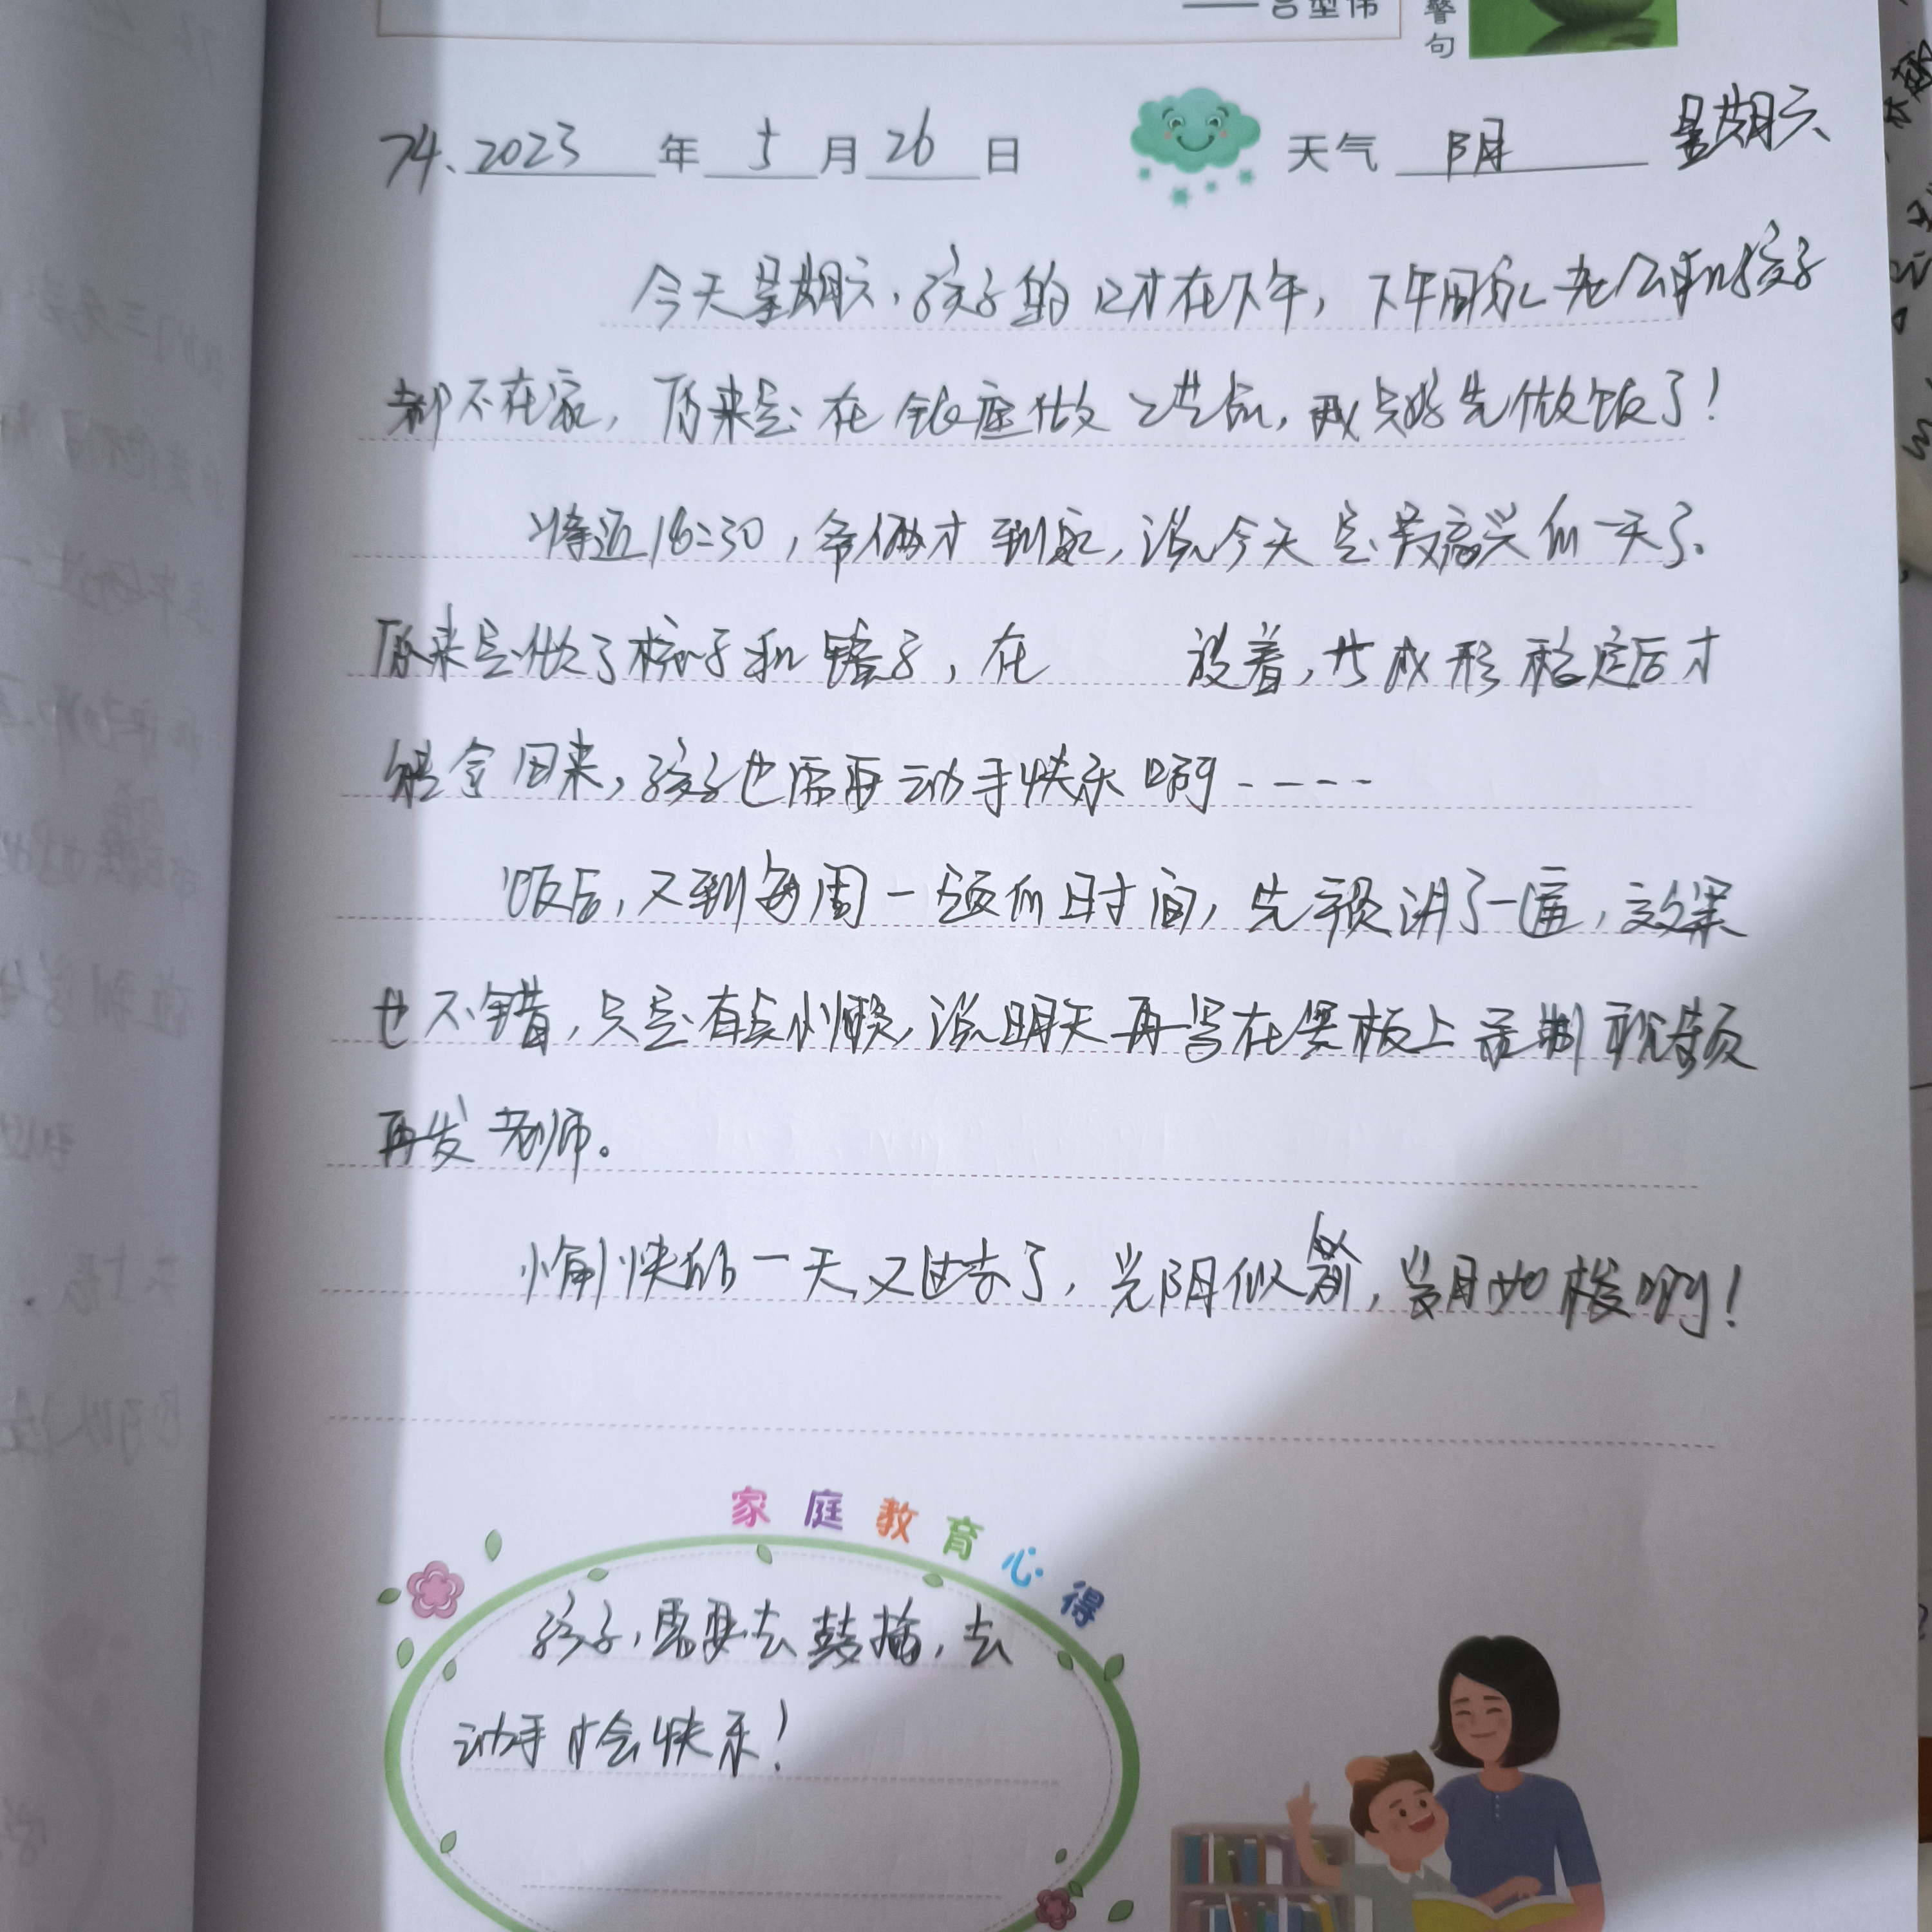 警句
74.2023年5月26日 天气 阴 星期六
今天星期六,孩子的口才在下午,下午回家老公和孩子
都不在家,原来是在银座做工艺品,我只好先做饭了!
将近18:30,爷俩才到家,说今天是最高兴的一天了.
原来是做了梳子和镜子,在 放着,步成形稳定后才
能拿回来,孩子也需要动手快乐啊----
饭后,又到每周一题的时间,先预讲了一遍,效果
也不错,只是有点小懒,说明天再写在黑板上录制视频
再发老师。
愉快的一天又过去了,光阴似箭,岁月如梭啊!
家庭教育心得
孩子,需要去鼓捣,去
动手才会快乐!